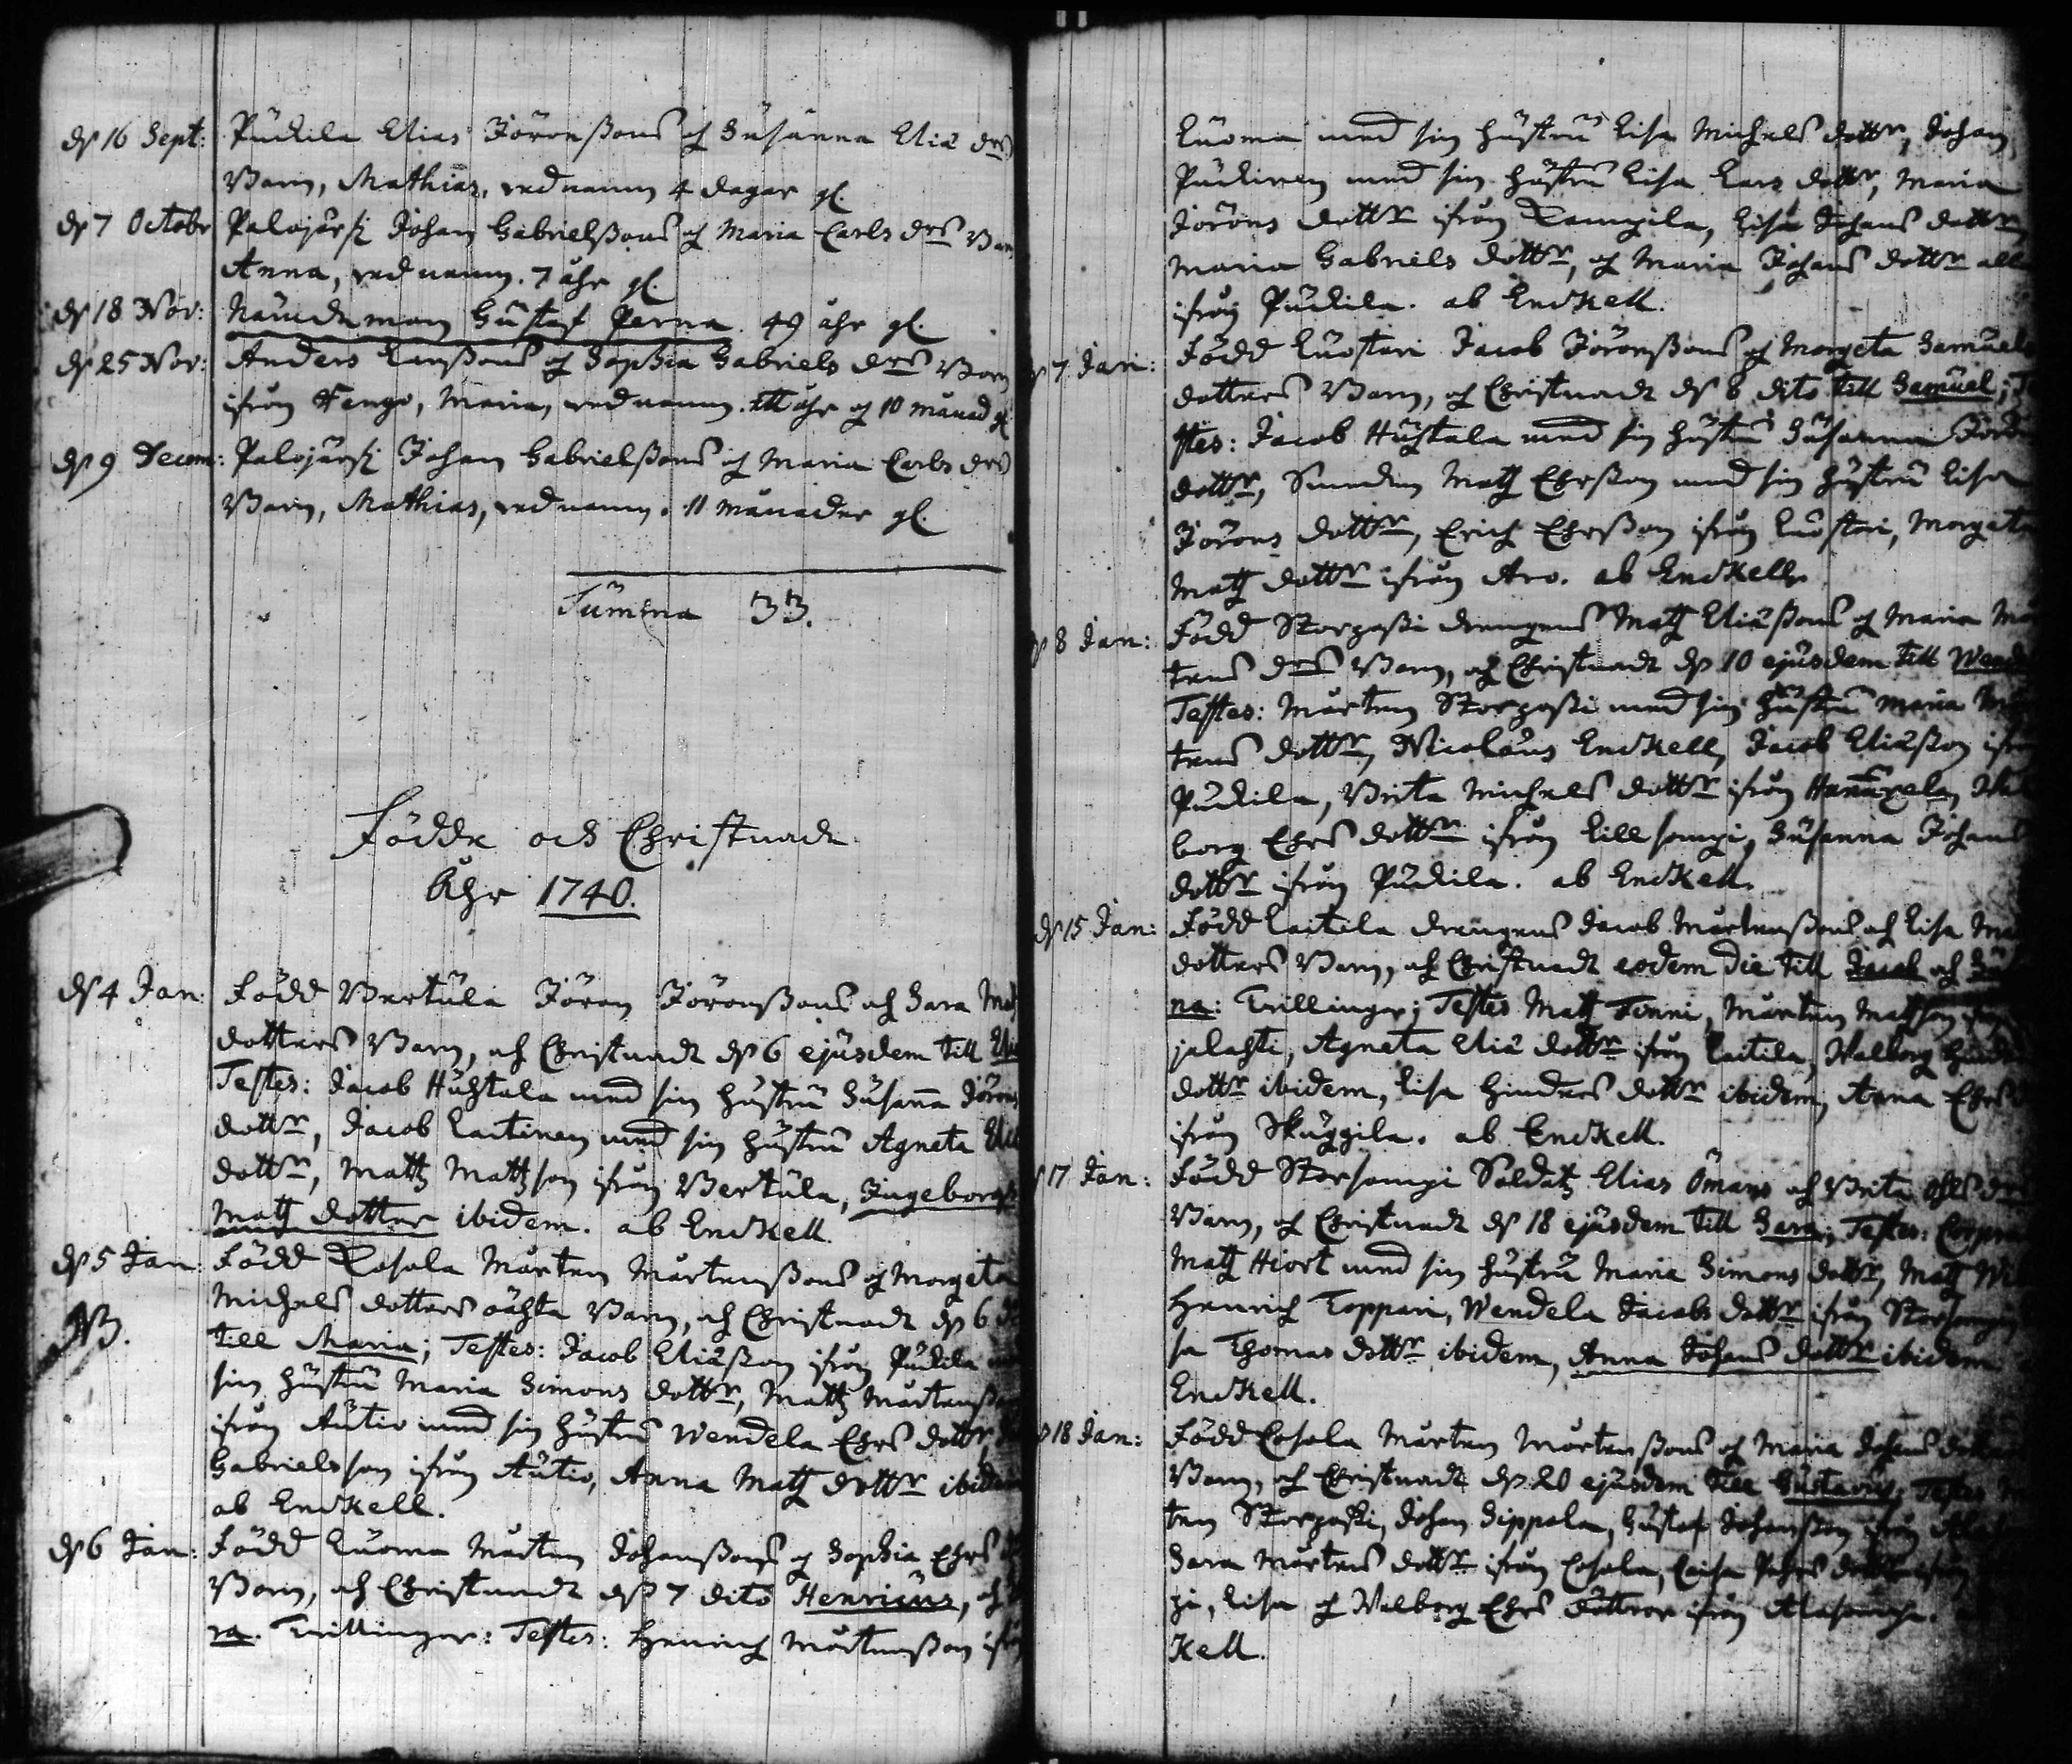 dß 16 Sept: Pückila Elias Jöronßons och Susanna Eliä drs
Barn, Mathias, wed namn 4 dagar gl.
dß 7 Octobr Palojärfi Johan Gabrielßons och Maria Carls drs Barn
Anna, wed namn. 7 åhr gl.
dß 18 Nov: Nämdeman Gustaf Perna 49 åhr gl.
dß 25 Nov: Anders Larßons och Sophia Gabriels drs Barn
ifrån Tengo, Maria, wed namn. ett åhr och 10 månad gl
dß 9 Decem: Palojärfi Johan Gabrielßons och Maria Carls drs
Barn, Mathias, wed namn. 11 månader gl.
Summa 33.
Födde och Christnade
Åhr 1740.
dß 4 Jan: Född Bertula Jöron Jöronßons och Sara
dotters Barn, och Christnadt dß 6 ejusdem till
Testes: Jacob Huhtala med sin hustru Susana Jörons
dottr, Jacob Laitinen med sin hustru Agneta Eliä
dottr, Mattz Mattzson ifrån Bertula, Ingeborg
Mattz dotter ibidem. ab Enckell.
dß 5 Jan: Född Cosola Mårten Mårtenßons och Margeta
NB. Michels dotters oächta Barn, och Christnadt dß 6
till Maria; Testes: Jacob Eliäßon ifrån Pückila
sin hustru Maria Simons dottr, Mattz Mårtenßon
ifrån Autio med sin hustru Wendela Ehrs dottr
Gabrielsson ifrån Autio, Anna Mattz dottr ibidem
ab Enckell.
dß 6 Jan: Född Luoma Mårten Johanßons och Sophia Ehrs
Barn, och Christnadt dß 7 dito Henricus, och
ra. Twillingar: Testes: Henrich Mårtenßon ifrån
Luoma med sin hustru Lisa Michels dottr, Johan
Puckinen med sin hustru Lisa Lars dottr, Maria
Jörons dottr ifrån Rampila, Lisa Johans dottr
Maria Gabriels dottr, och Maria Johans dottr alle
ifrån Pückila. ab Enckell.
7 Jan: Född Luostari Jacob Jöronßons och Margeta Samuels
dotters Barn, och Christnadt dß 8 dito till Samuel; Te
stes: Jacob Huhtala med sin hustru Susanna
dottr, Mattz Ehrßon med sin hustru Lisa
Jörons dottr, Erich Ehrßon ifrån Luostari, Margeta
Mattz dottr ifrån Aro. ab Enckell.
8 Jan: Född Storpaßi drengens Mattz Eliäßons och Maria Mår
tens drs Barn, och Christnadt dß 10 ejusdem till
Testes: Mårten Storpaßi med sin hustru Maria Mår
tens dottr, Nicolaus Enckell, Jacob Eliäßon ifrån
Pückila, Brita Michels dottr ifrån Wal
borg Ehrs dottr ifrån Lillsompi, Susanna Johans
dottr ifrån Pückila. ab Enckell.
dß 15 Jan: Född Laitila drengens Jacob Mårtenßons och Lisa
dotters Barn, och Christnadt eodem die till Jacob och Su
na: Twillingar; Testes Mattz Tonni, Mårten Mattson ifrån
jalahti, Agneta Eliä dottr ifrån Laitila, Walborg
dottr ibidem, Lisa Hindrs dottr ibidem, Anna Ehrs
ifrån Skuggila. ab Enckell.
17 Jan: Född Storsompi Soldatz Elias Ömans och Brita
Barn, och Christnadt dß 18 ejusdem till Sara; Testes: Corpra
Mattz Hiort med sin hustru Maria Simons dottr, Mattz
Henrich Toppari, Wendela Jacobs dottr ifrån Storsompi
sa Thomas dottr ibidem, Anna Johans dottr ibidem
Enckell.
18 Jan: Född Cosola Mårten Mårtenßons och Maria Johans dotters
Barn, och Christnadt dß 20 ejusdem till Gustavus; Testes
ten Storpaßi, Johan Sippola, Gustaf Johanßon ifrån
Sara Mårtens dottr ifrån Cosola, Caisa dottr ifrån
pi, Lisa och Walborg Ehrs döttrar ifrån Alasompi.
Kell.